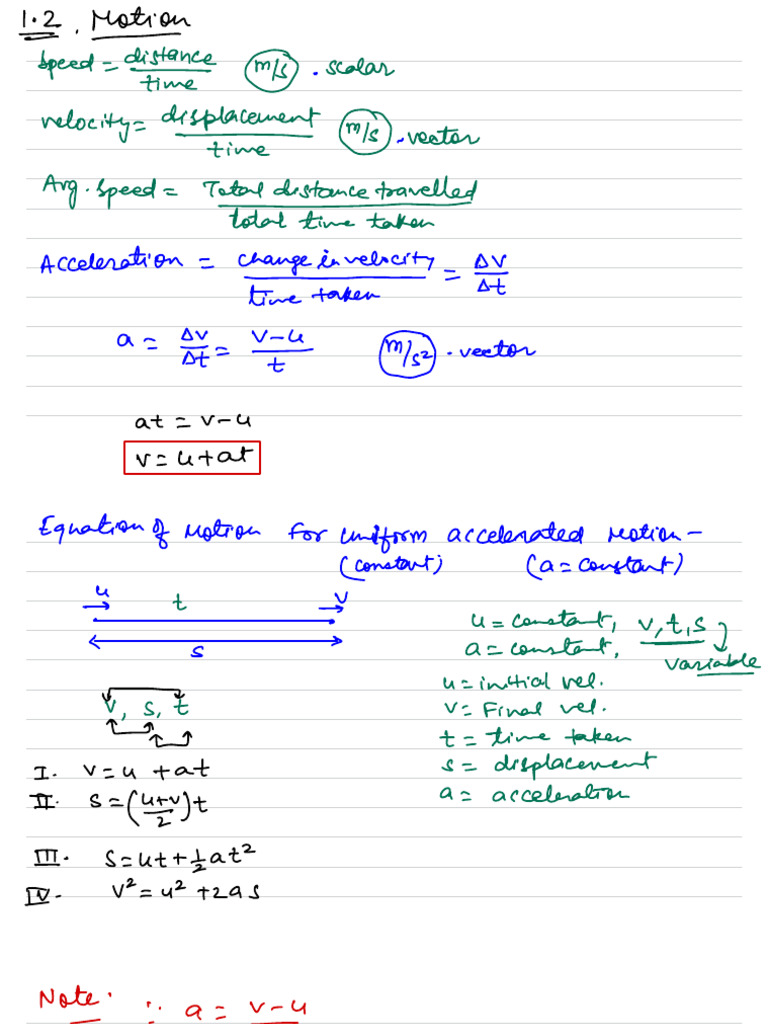 1.2. Motion
Speed = distance / time (m/s) . scalar
velocity = displacement / time (m/s) . vector
Avg. Speed = Total distance travelled / total time taken
Acceleration = change in velocity / time taken = Δv / Δt
a = Δv / Δt = v-u / t (m/s²) . vector
at = v-u
v = u+at
Equation of Motion for uniform accelerated Motion -
(constant) (a = constant)
u t v
s
u = constant, v, t, s
a = constant, variable
u = initial vel.
v = Final vel.
t = time taken
s = displacement
a = acceleration
v, s, t
I. v = u + at
II. s = (u+v / 2) t
III. s = ut + 1/2 at²
IV. v² = u² + 2as
Note: ∵ a = v-u